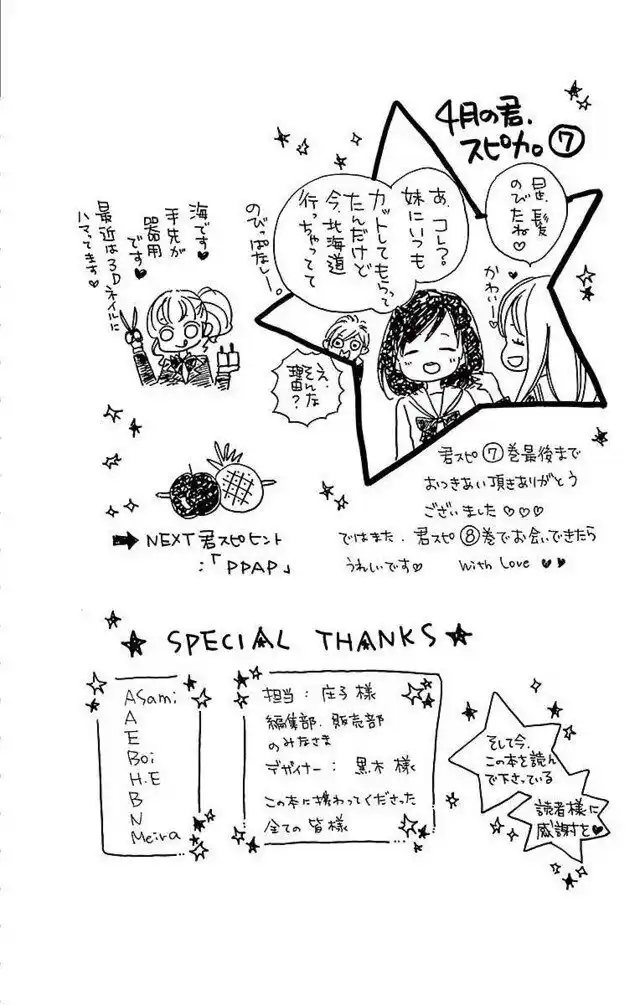 4月の君、
スピカ。⑦
星、髪
のびたね♡
かわいー♡
あ、コレ?
妹にいつも
カットしてもらって
たんだけど
今、北海道
行っちゃってて
のびっぱなしー。
え、そんな
理由?
海です♥
手先が
器用
です♥
最近は3Dネイルに
ハマってます♥
君スピ⑦巻最後まで
おつきあい頂きありがとう
ございました♡♡♡
ではまた、君スピ⑧巻でお会いできたら
うれしいです♡ With Love ♥♥
➡ NEXT 君スピヒント
:「PPAP」
★ SPECIAL THANKS ★
Asami
A
E
Boi
H.E
B
N
Meira
担当:庄子様
編集部、販売部
のみなさま
デザイナー:黒木様
この本に携わってくださった
全ての皆様
そして今、
この本を読ん
で下さっている
読者様に
感謝を♥